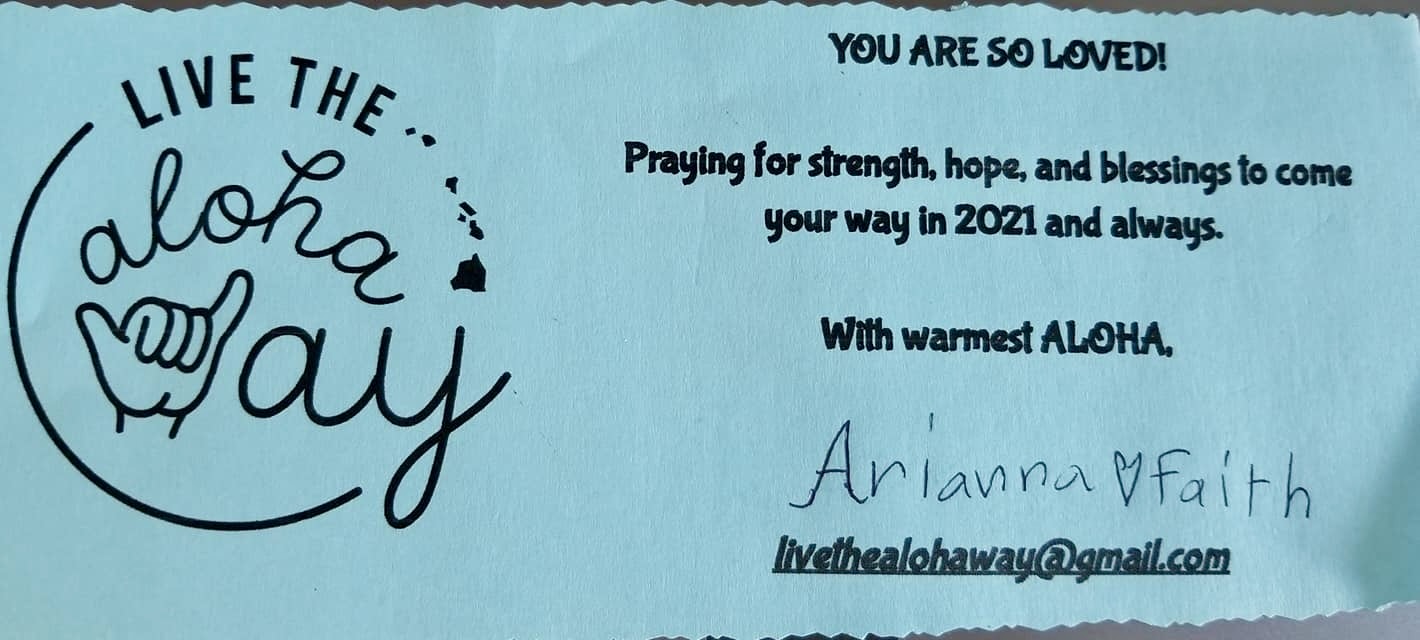 LIVE THE
aloha
way
YOU ARE SO LOVED!
Praying for strength, hope, and blessings to come
your way in 2021 and always.
With warmest ALOHA,
Arianna ♡ Faith
livethealohaway@gmail.com